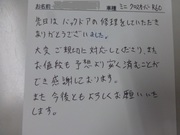 お名前
車種 ミニ クロスオーバー R60
先日は バックドアの修理をしていただき
ありがとうございました。
大変ご親切に対応して下さり、また
お値段も予想より安く済むことが
でき感謝しております。
また今後ともよろしくお願いいた
します。